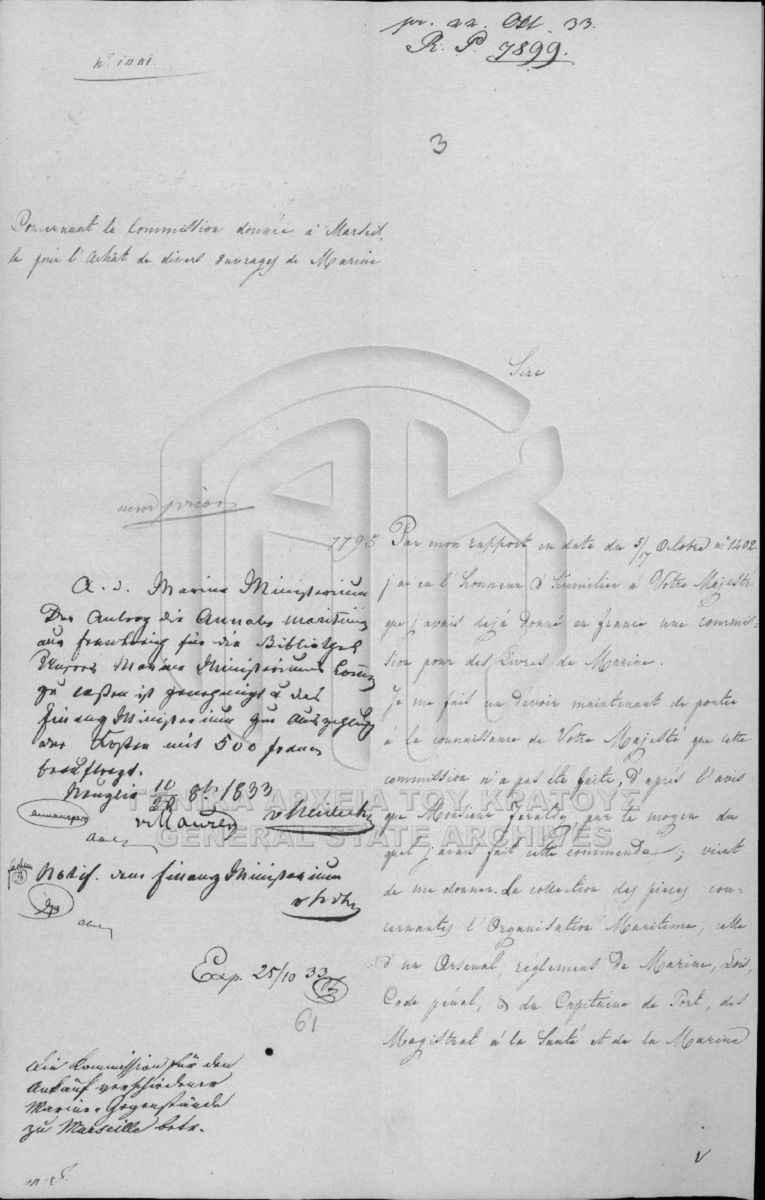 pr. 22 Oct. 33.
R. P. 7899.
3
Concernant la Commission donnée à Marseil,
le pour l'Achat de divers ouvrages de Marine
Sire
cum prior
1795
Par mon rapport en date du 5/17 Octobre n° 1402.
j'ai eu l'honneur d' à Votre Majesté
que j'avais déjà donné en france une Commis-
sion pour des Livres de Marine.
Je me fait un devoir maintenant de porter
à la connaissance de Votre Majesté que cette
commission n'a pas été faite, d'après l'avis
que Monsieur Feraldy, par le moyen du
quel j'avais fait cette commende; vient
de me donner. La collection des pièces con-
cernantes l'Organisation Maritime, celle
d'un Arsenal, réglement de Marine, Lois,
Code pénal, & du Capitaine de Port, des
Magistrat à la Santé et de la Marine
A. d. Marine Ministerium
Der Antrag die Annales maritimes
aus Frankreich für die Bibliothek
Unseres Marine Ministeriums
zu lassen ist genehmigt u das
Finanz Ministerium zur Auszahlung
der Kosten mit 500 francs
beauftragt.
Nauplia 10/22 8br 1833
v Maurer v Heideck
Notif. dem Finanz Ministerium
Exp. 25/10 33
61
die Kommission für den
Ankauf verschiedener
Marine-Gegenstände
zu Marseille betr.
ΓΕΝΙΚΑ ΑΡΧΕΙΑ ΤΟΥ ΚΡΑΤΟΥΣ
GENERAL STATE ARCHIVES